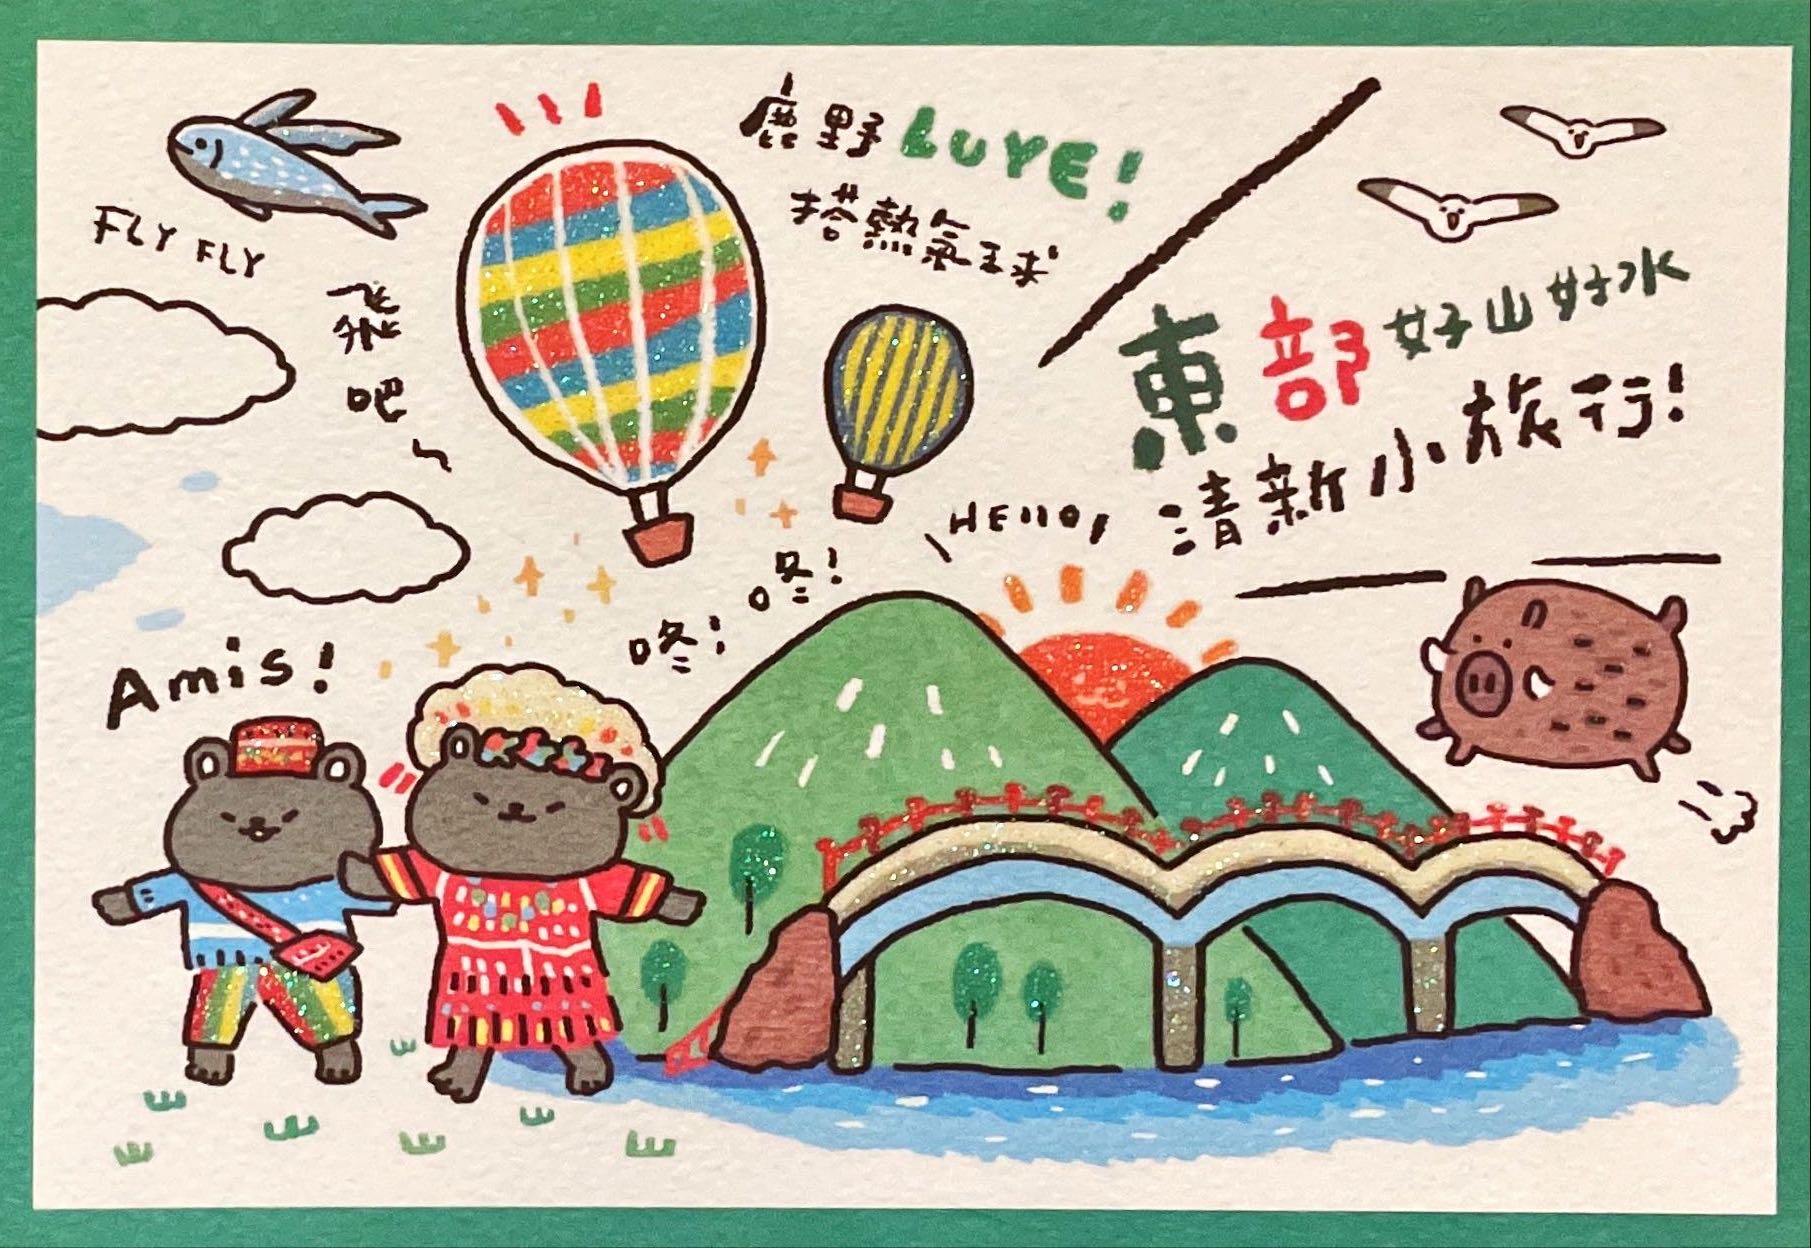 FLY FLY
飛吧~
鹿野 LUYE!
搭熱氣球
東部 好山好水
清新小旅行!
HELLO,
咚! 咚!
Amis!